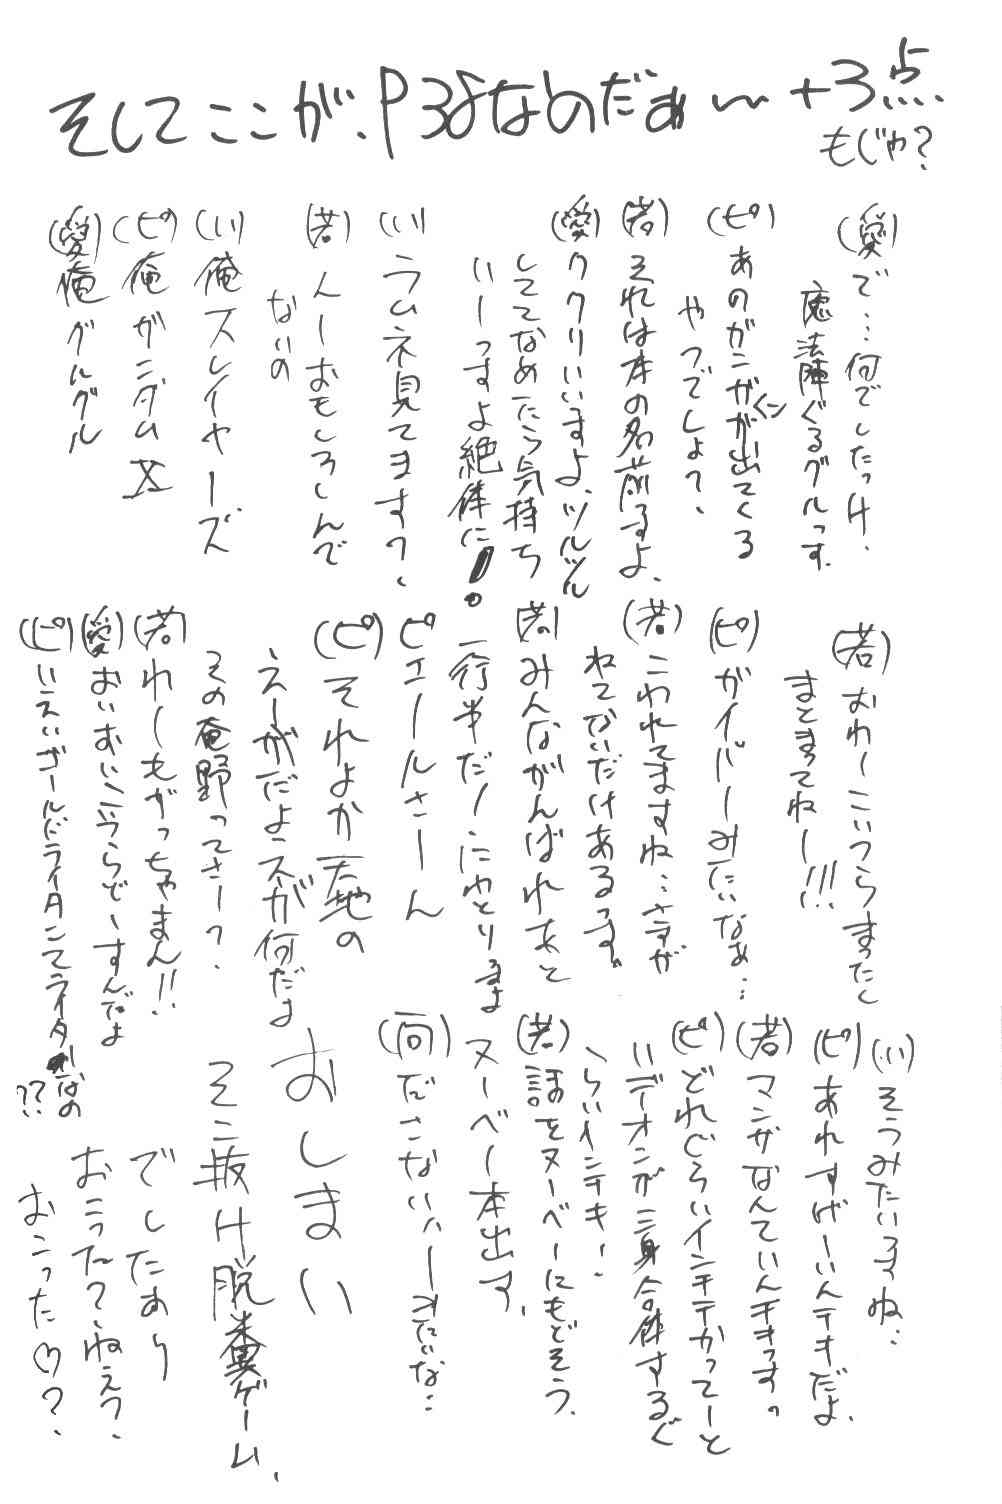 そしてここが、P38なのだぁ〜+3点…
もじゃ?
(愛)で…何でしたっけ、
魔法陣ぐるグルっす。
(ピ)あのガンガが出てくる
くン
やつでしょ?、
(岩)それは本の名前るよ、
(愛)ククリいいますよ、ツルツル
しててなめたら気持ち
いーっすよ絶体に!。
(い)ラムネ見てます?、
(若)んーおもしろしんで
ないの
(い)俺スレイヤーズ
(ピ)俺ガンダムX
(愛)俺グルグル
(若)おわーこいつらまったく
まとまってねー!!!
(ピ)ガイバーみたいなぁ…
(若)こわれてますね…さすが
ねてないだけあるっす。
(若)みんながんばれあと
一行半だ!にわとりるよ
ピエールさーん
(ピ)それよか天地の
えーがだよスが何だよ
その庵野ってさー?、
(若)れーもがっちゃまん!!
(愛)おいおいこいつらどーすんだよ
(ピ)いえいゴールドライタンてライターなの
??
(い)そうみたいすね…
(ピ)あれすげーいんチキだよ、
(若)マンガなんていんチキっす。
(ピ)どれぐらいインチキかってーと
いデオンが三身合体するぐ
らいインチキ!
(若)話をヌーベーにもどそう、
ヌーベー本出す、
(何)だこないハーみたいな…
おしまい
そこ抜け脱糞ゲーム、
でしたあり
おこった?、ねえ?、
おこった♡?、